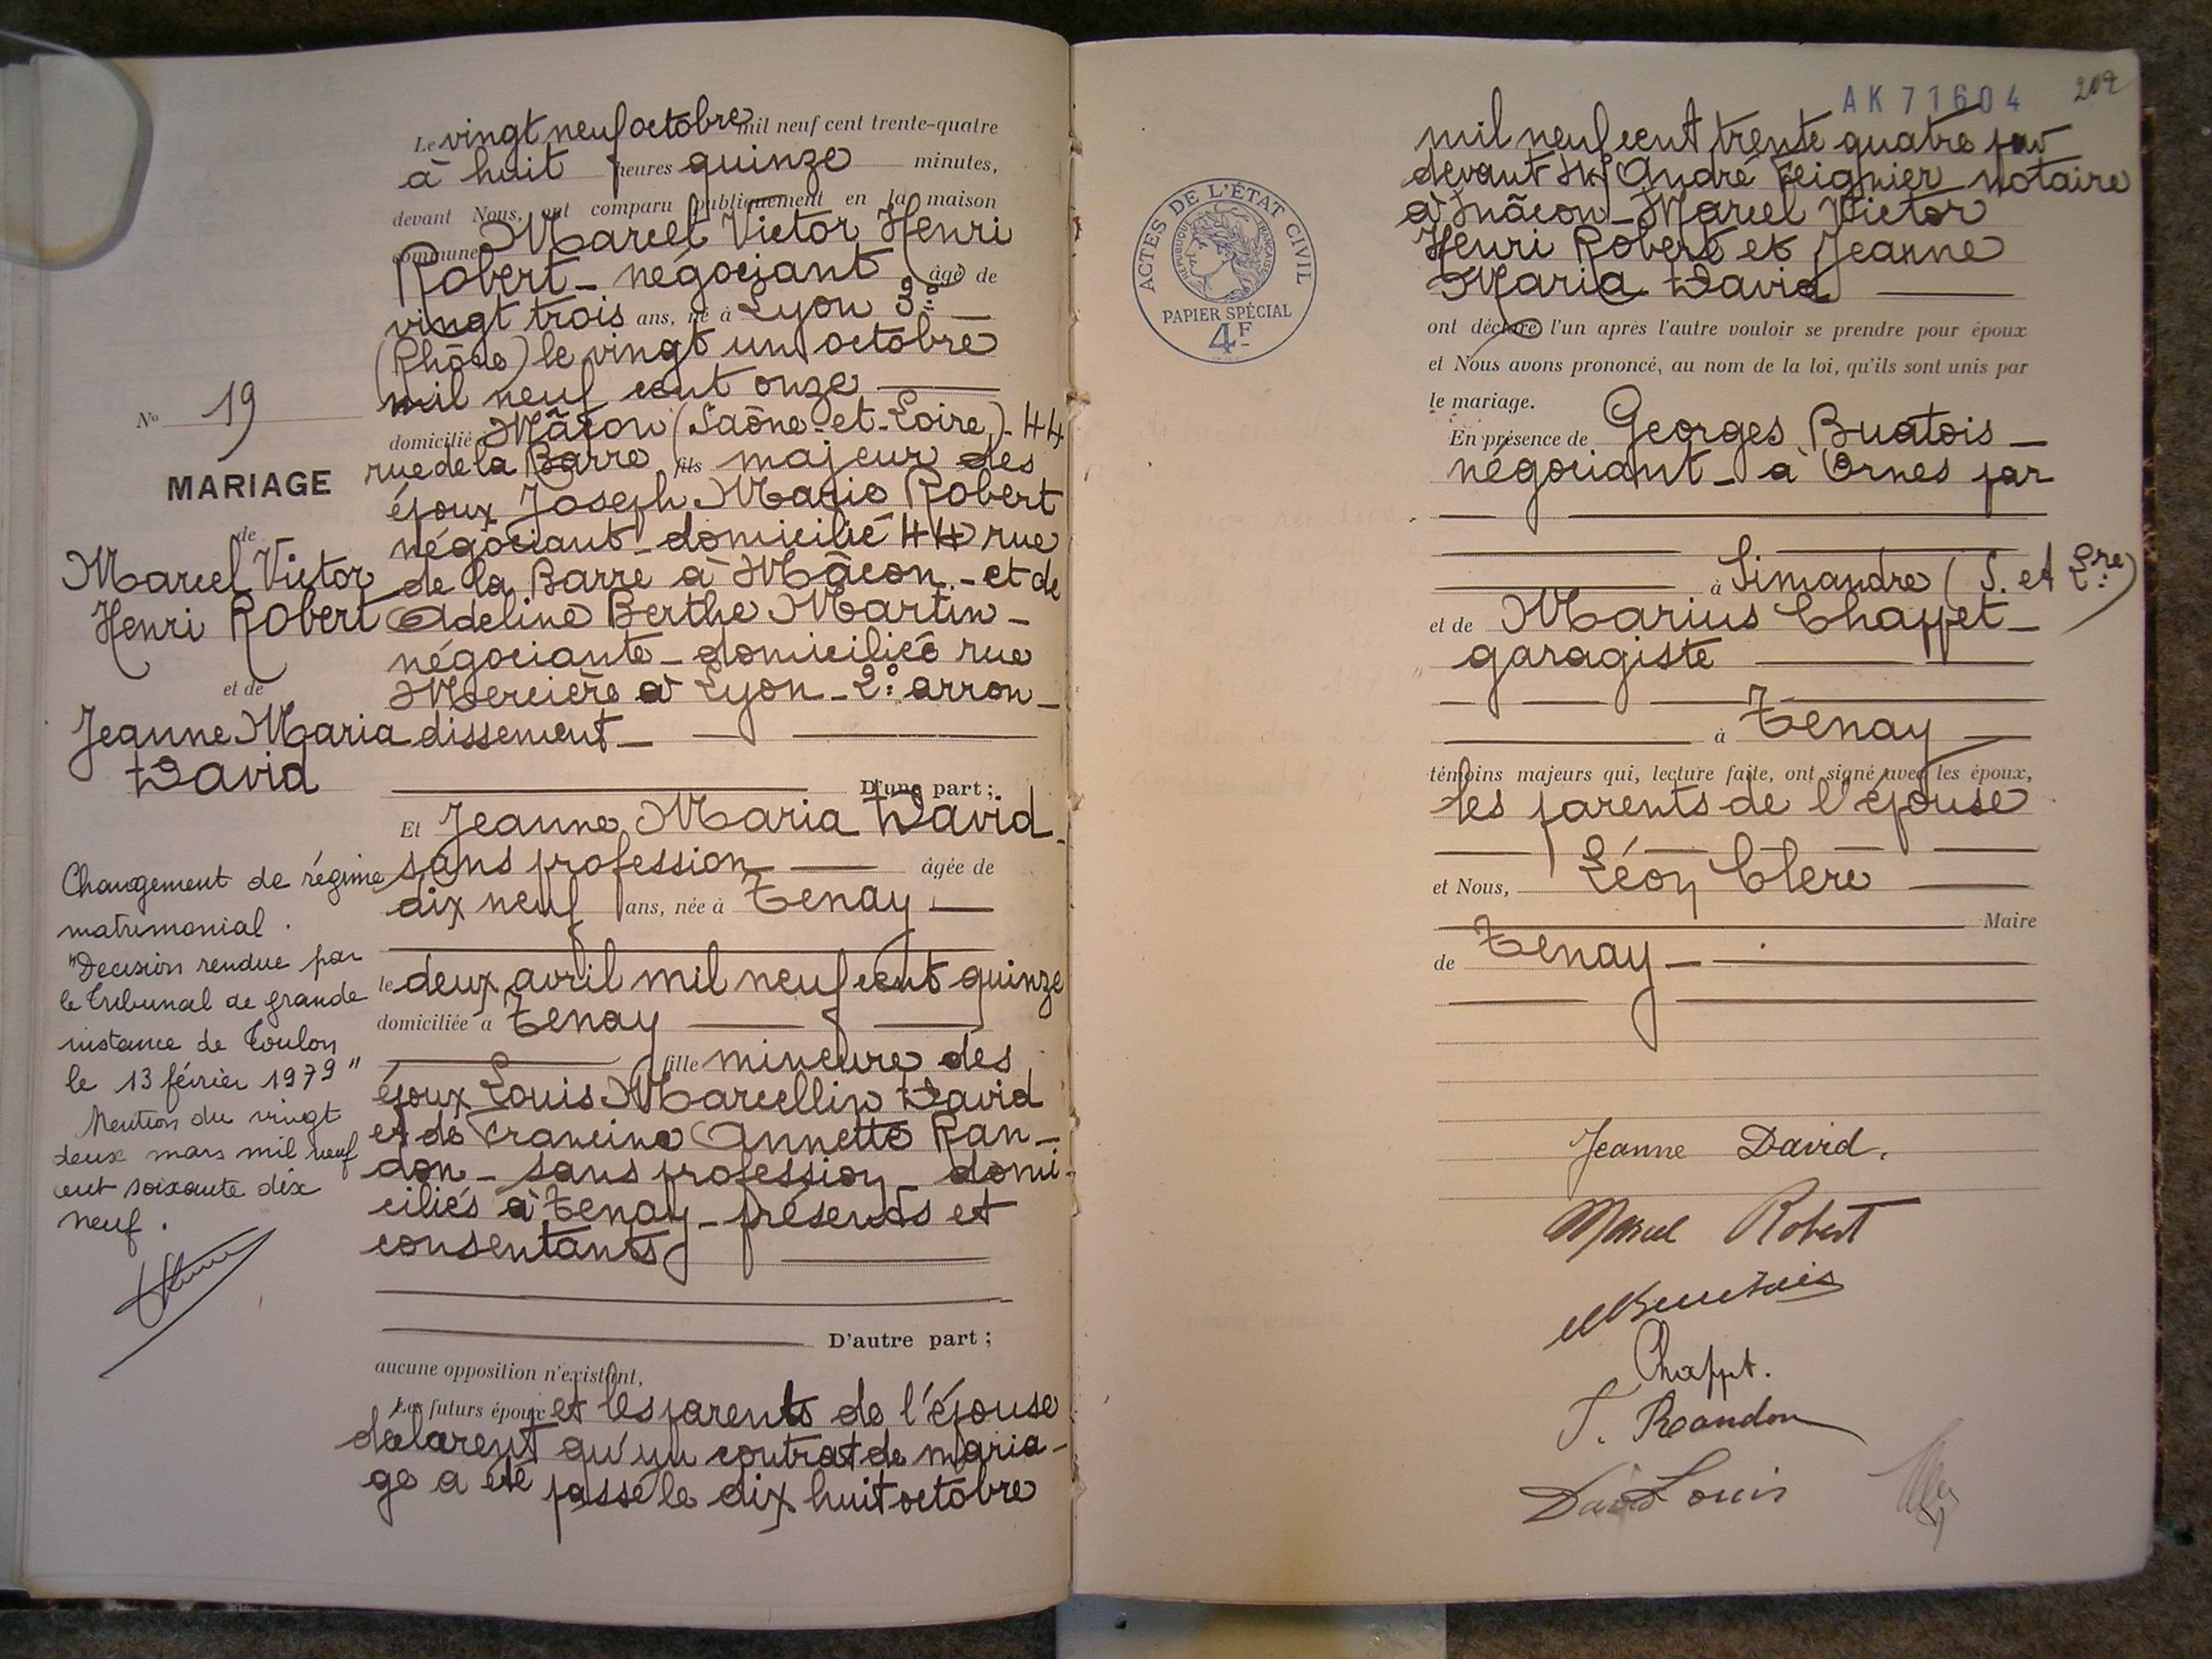 Le vingt neuf octobre mil neuf cent trente-quatre
à huit heures quinze minutes,
devant Nous, ont comparu publiquement en la maison
commune Marcel Victor Henri
Robert - négociant âgé de
vingt trois ans, né à Lyon 3e
(Rhône) le vingt un octobre
mil neuf cent onze
domicilié Mâcon (Saône-et-Loire) - 44
rue de la Barre fils majeur des
époux Joseph Marie Robert
négociant - domicilié 44 rue
de la Barre à Mâcon - et de
Adeline Berthe Martin -
négociante - domiciliée rue
Mercière à Lyon - 2e arron-
dissement -
D'une part ;
Et Jeanne Maria David
sans profession âgée de
dix neuf ans, née à Tenay
le deux avril mil neuf cent quinze
domiciliée à Tenay
fille mineure des
époux Louis Marcellin David
et de Francine Annette Ran-
don - sans profession - domi-
ciliés à Tenay - présents et
consentants
D'autre part ;
aucune opposition n'existant,
Les futurs époux et les parents de l'épouse
déclarent qu'un contrat de maria-
ge a été passé le dix huit octobre
No 19
MARIAGE
de
Marcel Victor
Henri Robert
et de
Jeanne Maria
David
Changement de régime
matrimonial.
"Decision rendue par
le Tribunal de grande
instance de Toulon
le 13 février 1979"
Mention du vingt
deux mars mil neuf
cent soixante dix
neuf.
AK 71604
202
ACTES DE L'ÉTAT CIVIL
RÉPUBLIQUE FRANÇAISE
PAPIER SPÉCIAL
4F
mil neuf cent trente quatre par
devant Me André notaire
à Mâcon - Marcel Victor
Henri Robert et Jeanne
Maria David
ont déclaré l'un après l'autre vouloir se prendre pour époux
et Nous avons prononcé, au nom de la loi, qu'ils sont unis par
le mariage.
En présence de Georges Buatois -
négociant - à Ornes par
à Simandre (S. et Lre)
et de Marius Chappet -
garagiste
à Tenay
témoins majeurs qui, lecture faite, ont signé avec les époux,
les parents de l'épouse
et Nous, Léon Clerc
Maire
de Tenay -
Jeanne David.
Marcel Robert
Chappet.
F. Randon
David Louis